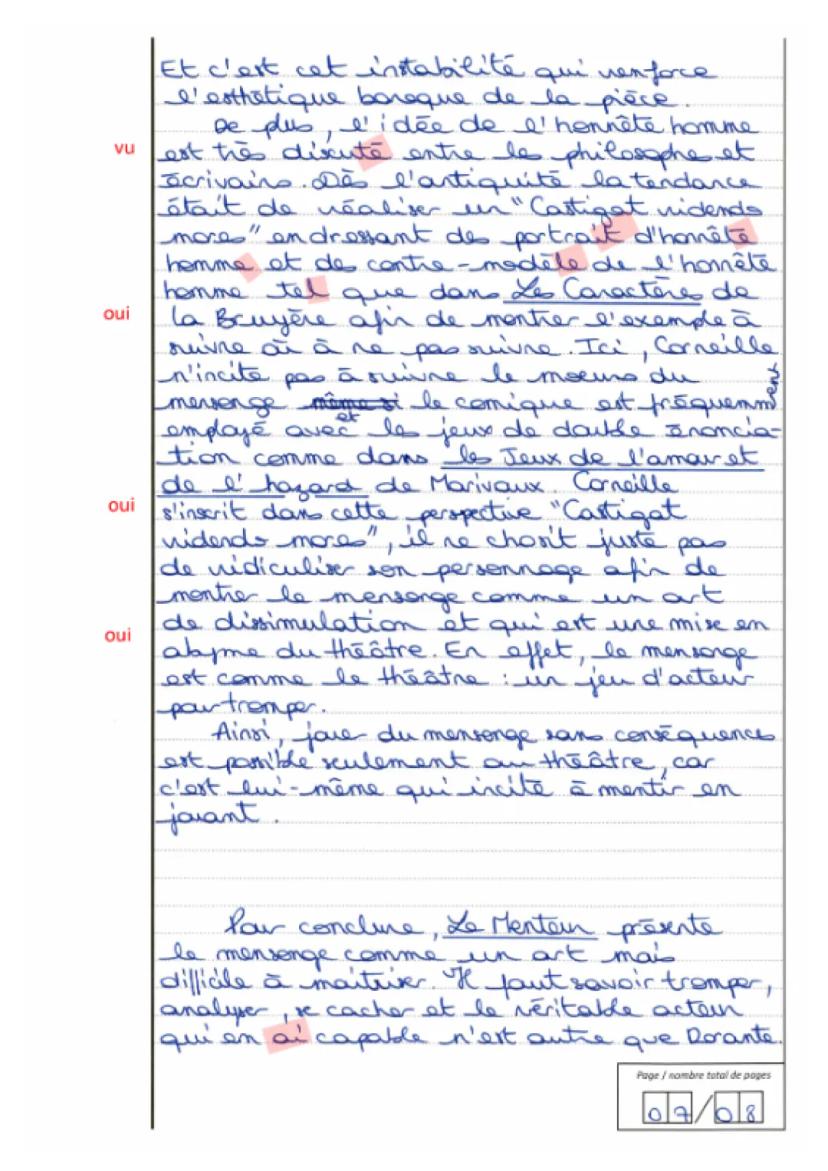 Et c'est cet instabilité qui renforce
l'esthétique baroque de la pièce.
De plus, l'idée de l'honnête homme
vu
est très discuté entre les philosophe et
écrivains. Dès l'antiquité la tendance
était de réaliser un "Castigat ridendo
mores" en dressant des portrait d'honnête
homme et des contre-modèle de l'honnête
homme tel que dans Les Caractères de
oui
la Bruyère afin de montrer l'exemple à
suivre où à ne pas suivre. Ici, Corneille
n'incite pas à suivre le moeurs du
mensonge même si et le comique est fréquemment
employé avec les jeux de double énoncia-
tion comme dans les Jeux de l'amour et
de l'hazard de Marivaux. Corneille
oui
s'inscrit dans cette perspective "Castigat
ridendo mores", il ne choisit juste pas
de ridiculiser son personnage afin de
montrer le mensonge comme un art
oui
de dissimulation et qui est une mise en
abyme du théâtre. En effet, le mensonge
est comme le théâtre : un jeu d'acteur
pour tromper.
Ainsi, jouer du mensonge sans conséquences
est possible seulement au théâtre, car
c'est lui-même qui incite à mentir en
jouant.
Pour conclure, Le Menteur présente
le mensonge comme un art mais
difficile à maitriser. Il faut savoir tromper,
analyser, se cacher et le véritable acteur
qui en ai capable n'est autre que Dorante.
Page / nombre total de pages
07/08